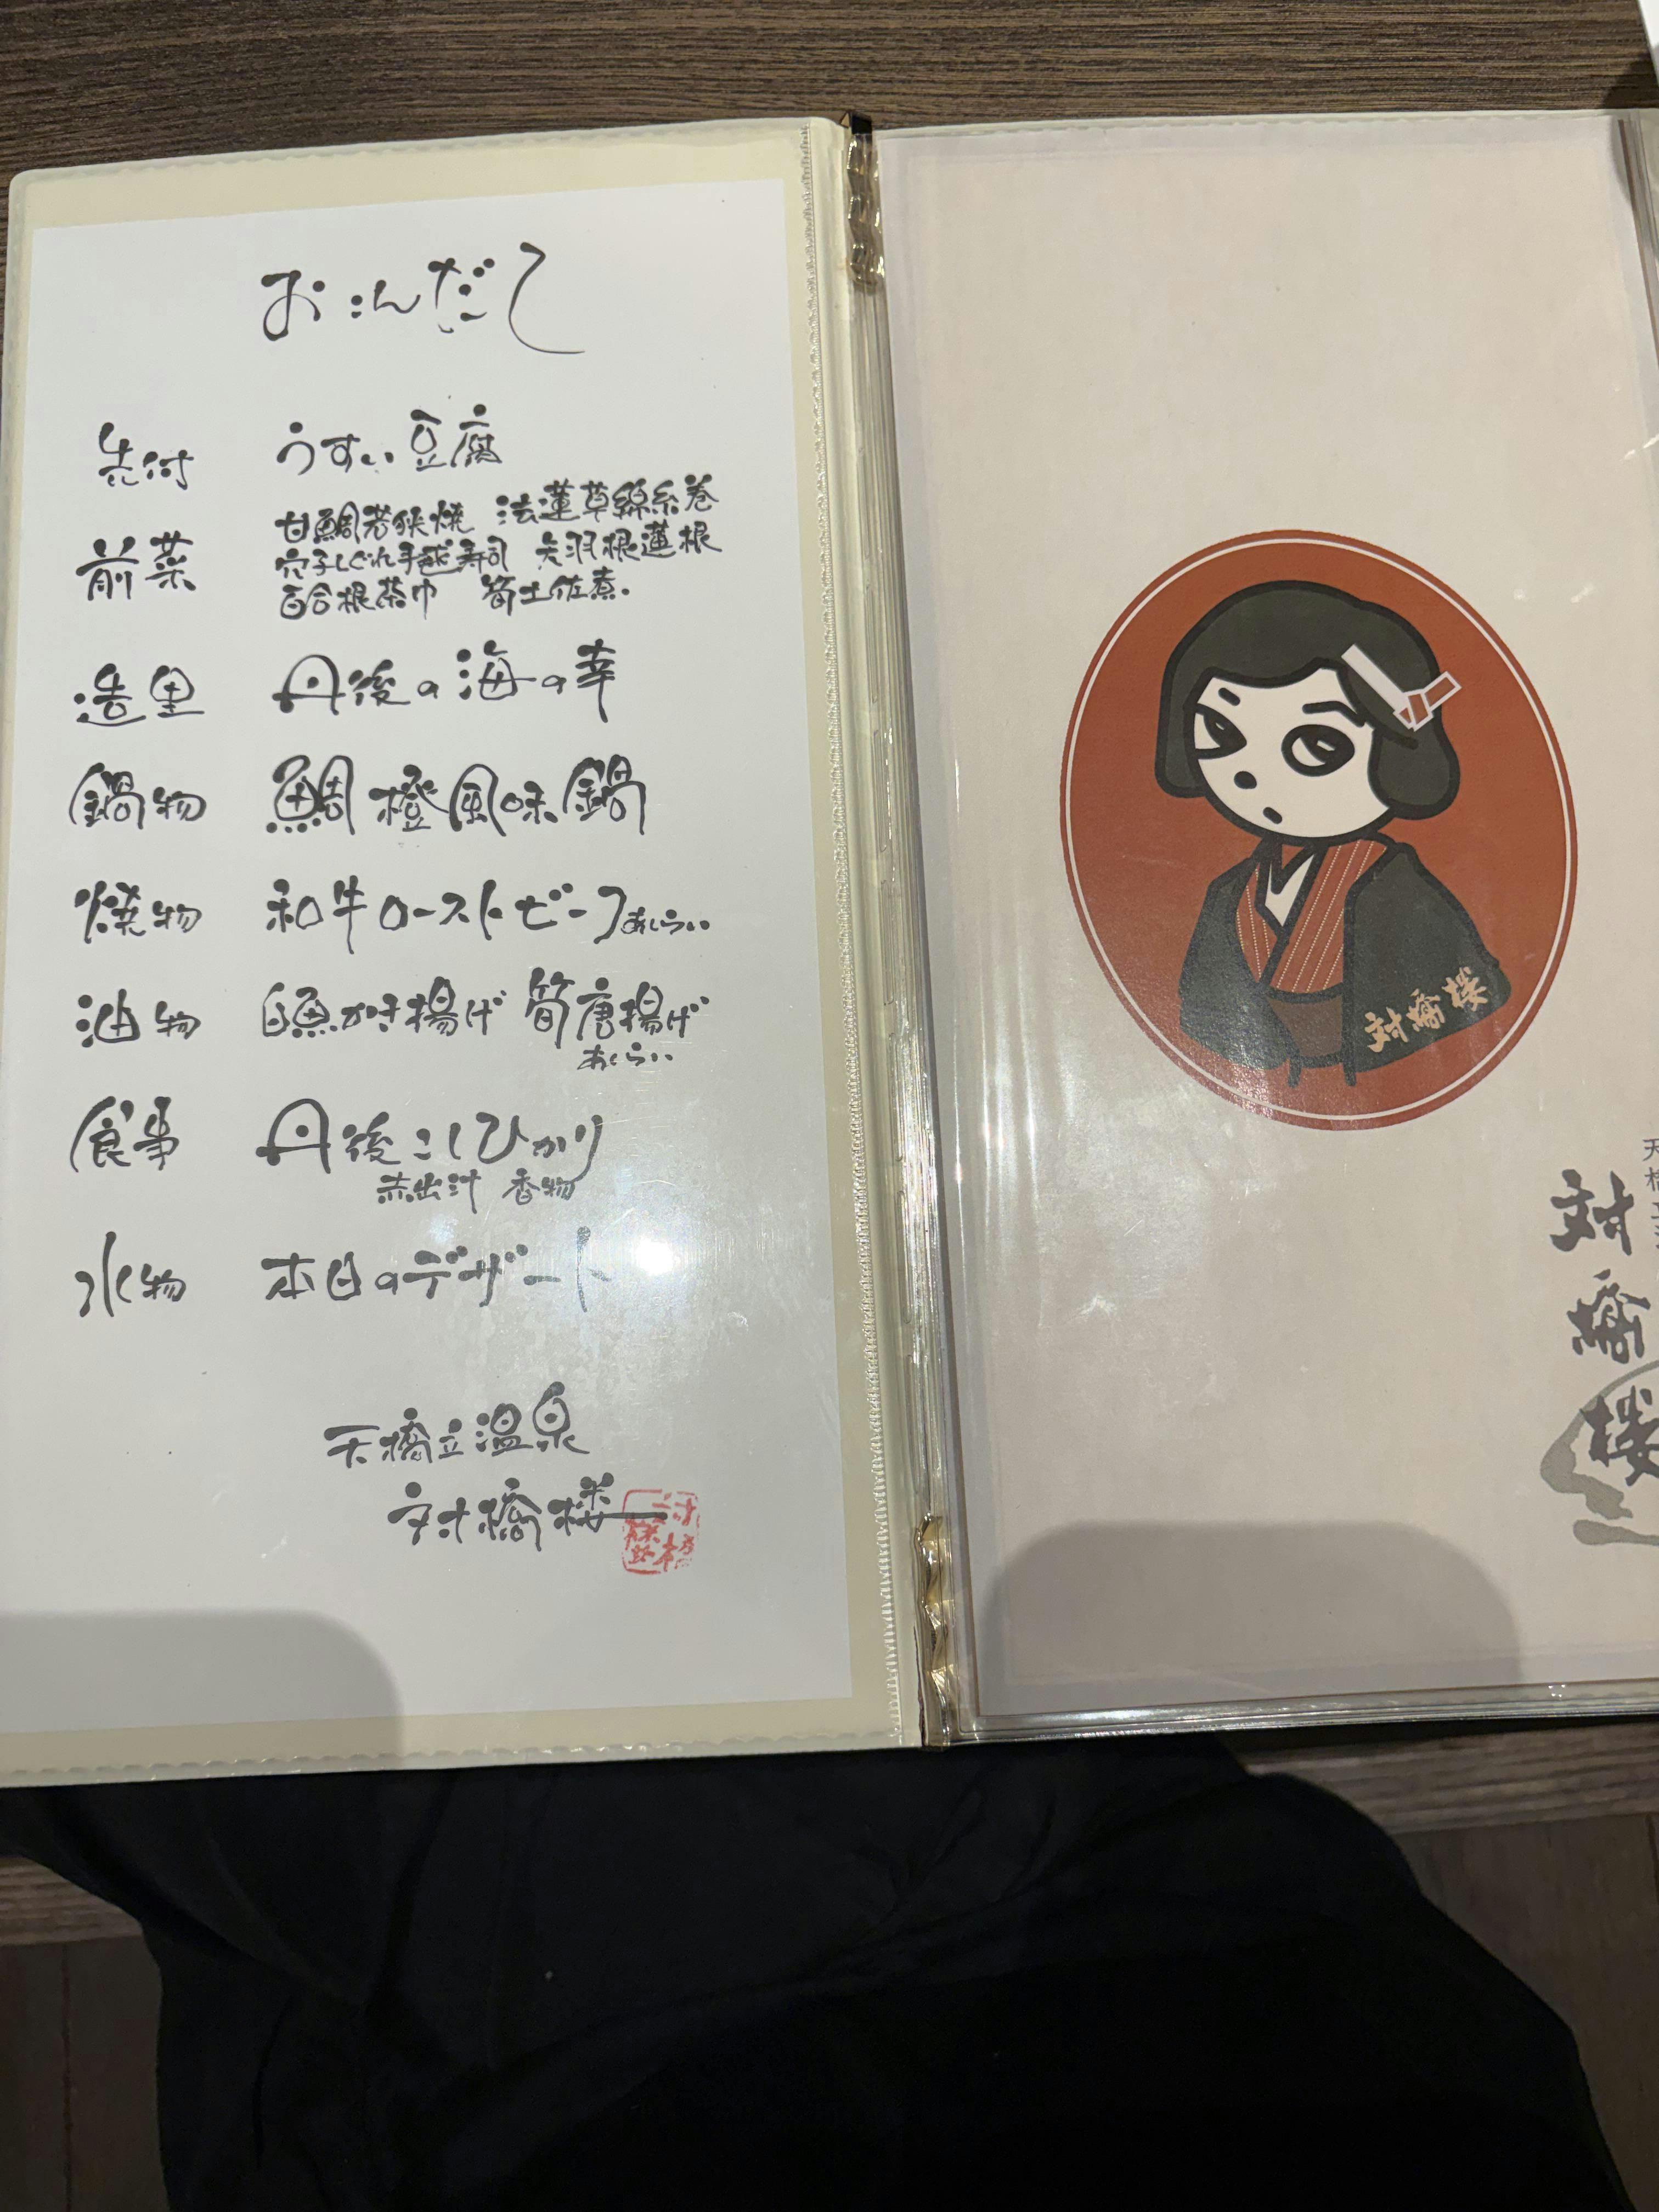 おこんだて
先付 うすい豆腐
前菜 甘鯛若狭焼 法蓮草錦糸巻
穴子しぐれ手毬寿司 矢羽根蓮根
百合根茶巾 筍土佐煮
造里 丹後の海の幸
鍋物 鯛橙風味鍋
焼物 和牛ローストビーフ あしらい
油物 白魚かき揚げ 筍唐揚げ
あしらい
食事 丹後こしひかり
赤出汁 香物
水物 本日のデザート
天橋立温泉
対橋楼
対橋楼
対橋楼